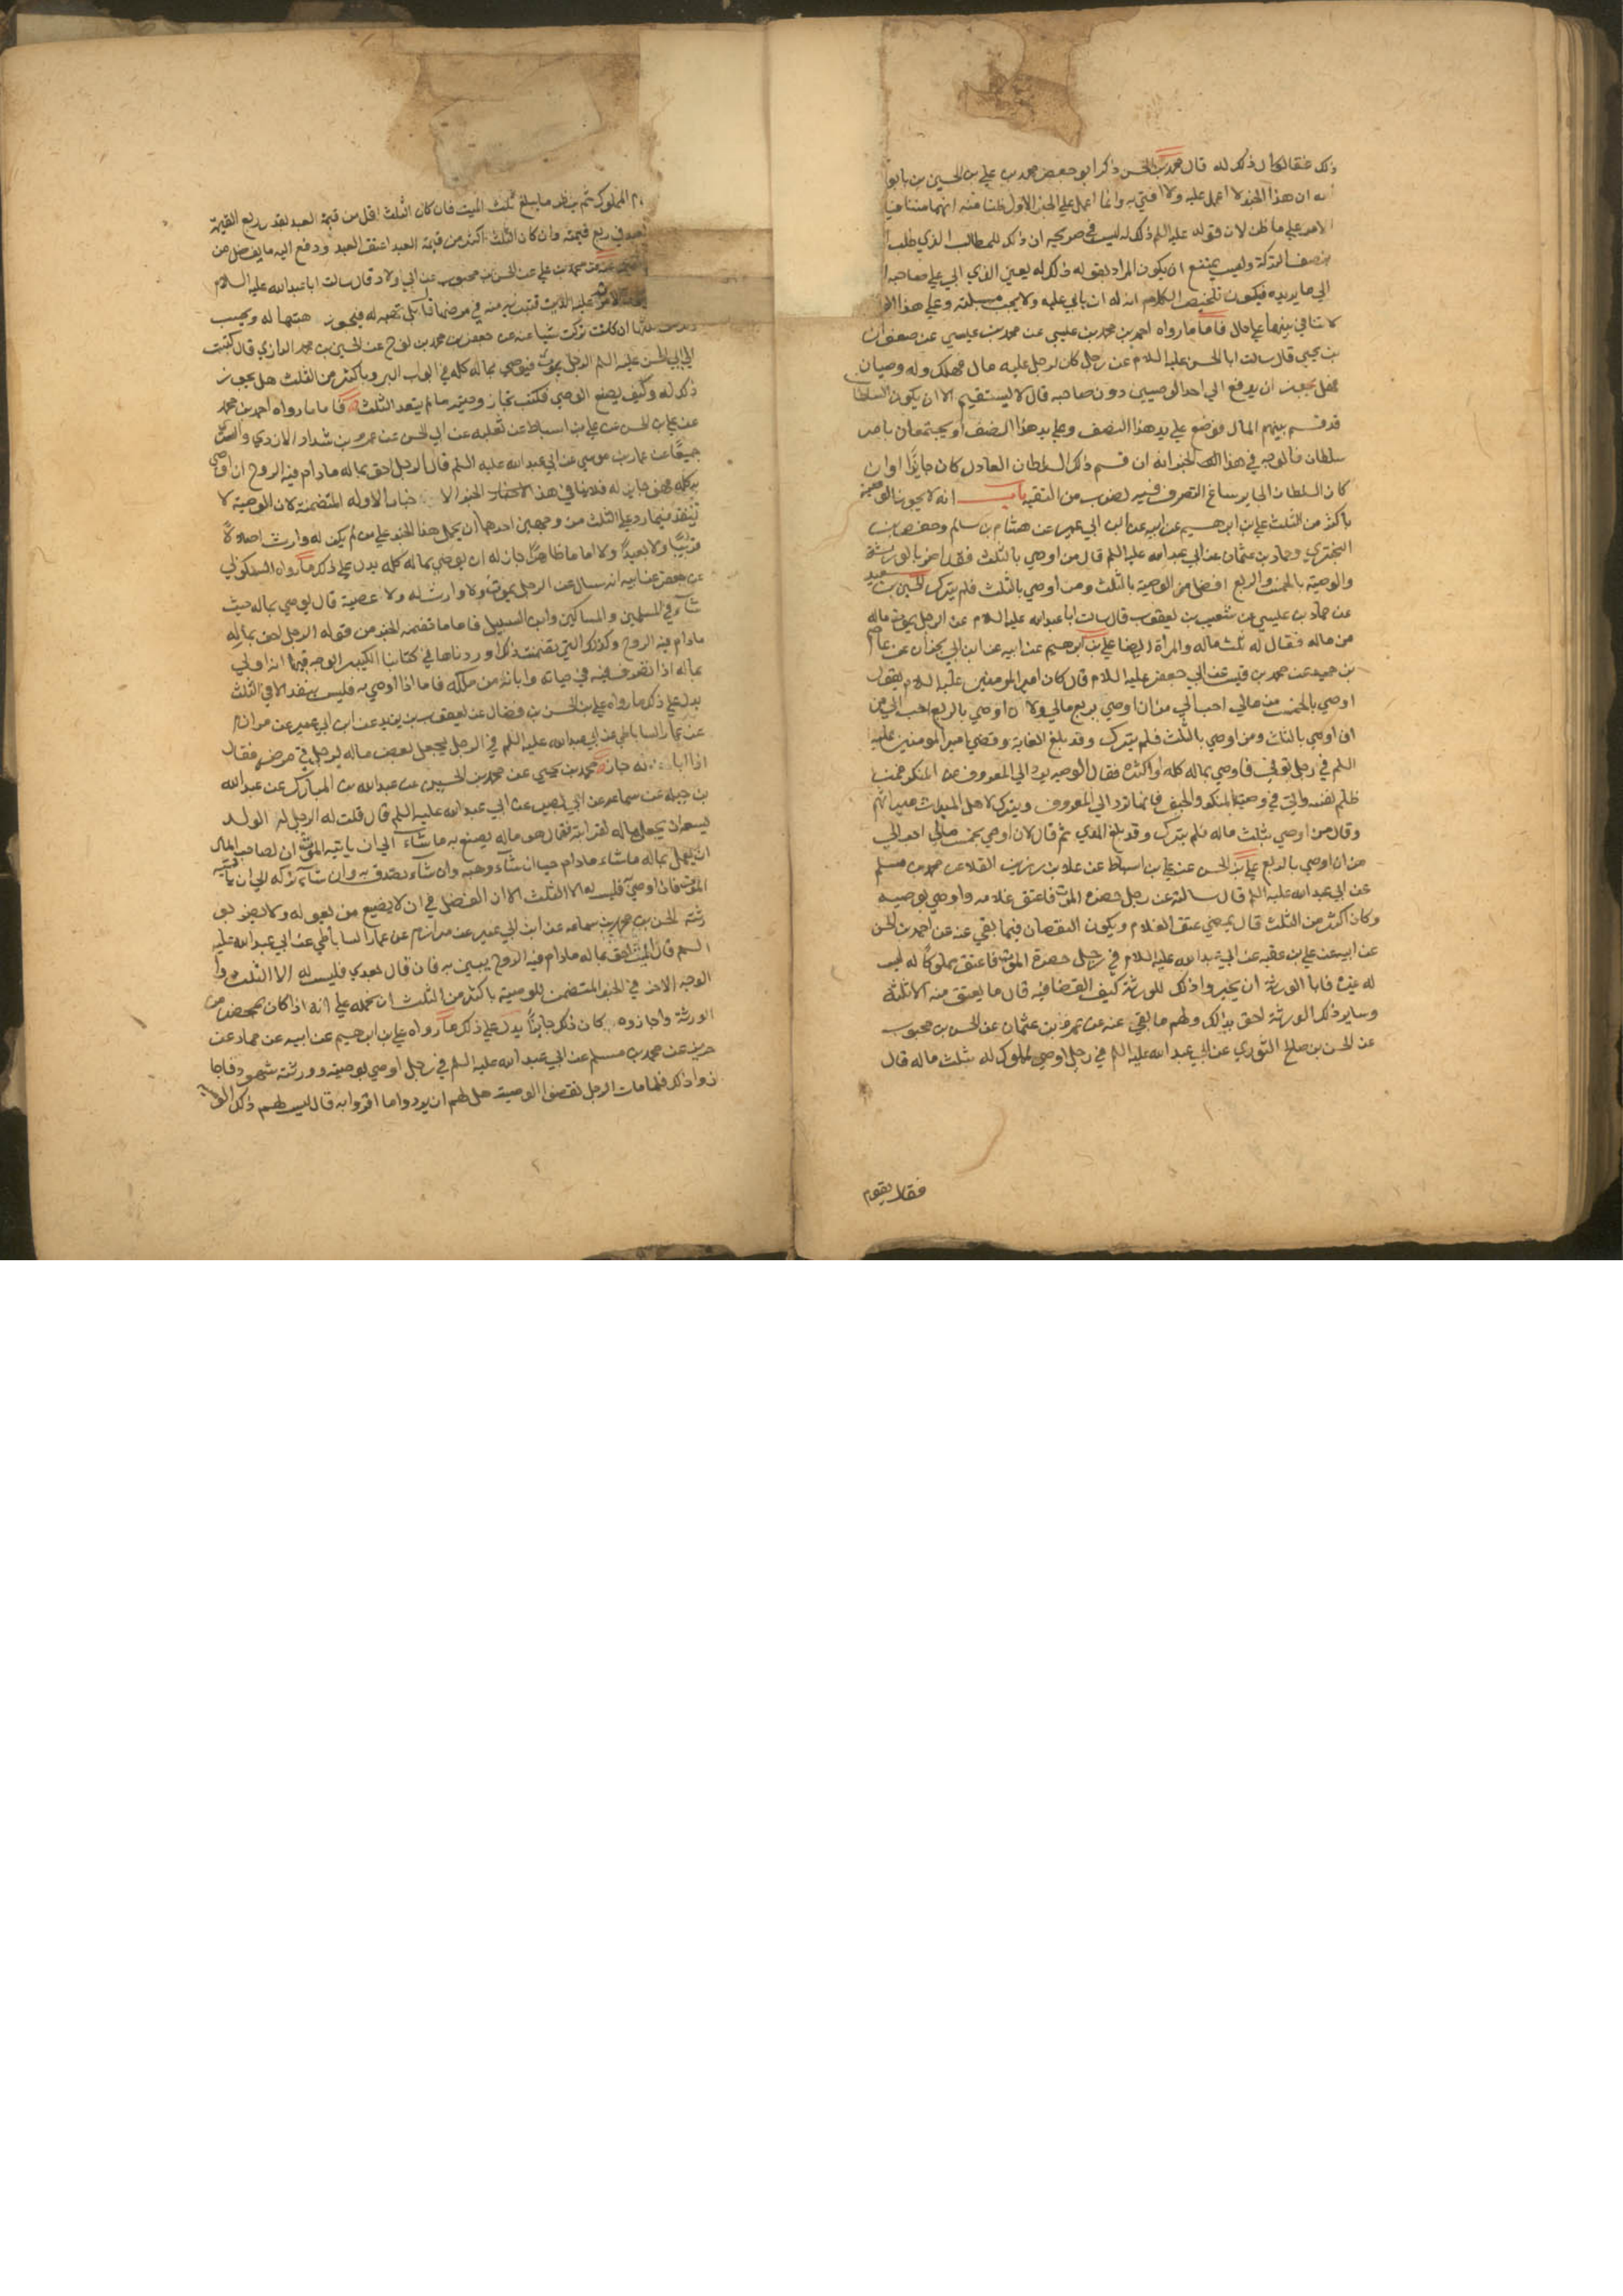 ذلك فقال كان ذلك له قال محمد بن الحسن ذكر ابو جعفر محمد بن علي بن الحسين بن بابويه
ان هذا الخبر لا اعمل عليه ولا افتي به وانما اعمل علي الخبر الاول ظنا منه انهما متنافيا
الامر علي ما ظن لان قوله عليه السلم ذلك له ليس في صريحه ان ذلك للمطالب الذي طلب ا
بنصف التركة وليس يمتنع ان يكون المراد بقوله ذلك له يعني الذي ابي علي صاحبه ا
الي ما يريده فيكون تلخيص الكلام ان له ان يابي عليه ولا يجيب مسئلته وعلي هذا الو
لا تنافي بينهما علي حال فاما ما رواه احمد بن محمد بن عيسي عن محمد بن عيسي عن صفوان
بن يحيي قال سالت ابا الحسن عليه السلام عن رجل كان لرجل عليه مال فهلك وله وصيان
فهل يجوز ان يدفع الي احد الوصيين دون صاحبه قال لا يستقيم الا ان يكون السلطان
قد قسم بينهم المال فوضع علي يد هذا النصف وعلي يد هذا النصف او يجتمعان بامر
سلطان فالوجه في هذا الخبر انه ان قسم ذلك السلطان العادل كان جايزا وان
كان السلطان الجاير ساغ التصرف فيه لضرب من التقيه باب انه لا يجوز الوصية
باكثر من الثلث علي بن ابرهيم عن ابيه عن ابن ابي عمير عن هشام بن سلم وحفص بن
البختري وحماد بن عثمان عن ابي عبد الله عليه السلم قال من اوصي بالثلث فقد اضر بالورثة
والوصية بالخمس والربع افضل من الوصية بالثلث ومن اوصي بالثلث فلم يترك الحسين بن سعيد
عن حماد بن عيسي عن شعيب بن يعقوب قال سالت ابا عبد الله عليه السلام عن الرجل يموت ماله
من ماله فقال له ثلث ماله والمراة ايضا علي بن ابرهيم عن ابيه عن ابن ابي نجران عن عاصم
بن حميد عن محمد بن قيس عن ابي جعفر عليه السلام قال كان امير المومنين عليه السلام يقول
اوصي بالخمس من مالي احب الي من ان اوصي بربع مالي ولان اوصي بالربع احب الي من
ان اوصي بالثلث ومن اوصي بالثلث فلم يترك وقد بلغ الغاية وقضي امير المومنين عليه
السلم في رجل توفي فاوصي بماله كله او اكثره فقال الوصيه يرد الي المعروف عن المنكر فمن
ظلم نفسه واتي في وصيته المنكر والحيف فانها ترد الي المعروف ويترك لاهل الميراث ميراثهم
وقال من اوصي بثلث ماله فلم يترك وقد بلغ المدي ثم قال لان اوصي بخمس مالي احب الي
من ان اوصي بالربع علي بن الحسن عن علي بن اسباط عن علا بن رزين القلا عن محمد بن مسلم
عن ابي عبد الله عليه السلم قال سالته عن رجل حضره الموت فاعتق غلامه واوصي بوصيه
وكان اكثر من الثلث قال يمضي عتق الغلام ويكون النقصان فيما بقي عنه عن احمد بن الحسن
عن ابيه عن علي بن عقبه عن ابي عبد الله عليه السلام في رجل حضره الموت فاعتق مملوكا له ليس
له غيره فابا الورثه ان يجيزوا ذلك للورثة كيف القضا فيه قال ما يعتق منه الا ثلثه
وساير ذلك الورثة احق بذلك ولهم ما بقي عنه عن عمرو بن عثمان عن الحسن بن محبوب
عن الحسن بن صالح الثوري عن ابي عبد الله عليه السلم في رجل اوصي لمملوك له بثلث ماله قال
فقال يقوم
المملوك ثم ينظر ما يبلغ ثلث الميت فان كان الثلث اقل من قيمة العبد بقدر ربع القيمة
في ربع قيمته وان كان الثلث اكثر من قيمة العبد اعتق العبد ودفع اليه ما يفضل من
محمد بن علي عن الحسن بن محبوب عن ابي ولاد قال سالت ابا عبد الله عليه السلام
عليه الدين فتبريه منه في مرضها قال بل تهبه له فيجوز هبتها له ويحسب
ان كانت تركت شيا عنه عن جعفر بن محمد بن نوح عن الحسين بن محمد الرازي قال كتبت
الي ابي الحسن عليه السلم الرجل يموت فيوصي بماله كله في ابواب البر وباكثر من الثلث هل يجوز
ذلك له وكيف يصنع الوصي فكتب تجاز وصيته ما لم يتعد الثلث فاما ما رواه احمد بن محمد
عن علي بن الحسن عن علي بن اسباط عن ثعلبه عن ابي الحسن عن عمرو بن شداد الازدي والسري
جميعا عن عمار بن موسي عن ابي عبد الله عليه السلم قال الرجل احق بماله ما دام فيه الروح ان اوصي
به كله فهو جايز له فلا ينافي هذا الخبر الاخبار الاوله المتضمنة لان الوصية لا
تنفذ فيما زاد علي الثلث من وجهين احدهما ان يحمل هذا الخبر علي من لم يكن له وارث اصلا لا
قريبا ولا بعيدا ولا اماما ظاهرا جاز له ان يوصي بماله كله يدل علي ذلك ما رواه السكوني
عن جعفر عن ابيه انه سال عن الرجل يموت ولا وارث له ولا عصبة قال يوصي بماله حيث
شاء في المسلمين والمساكين وابن السبيل فاما ما تضمنه الخبر من قوله الرجل احق بماله
ما دام فيه الروح وكذلك التي تضمنت ذلك اوردناها في كتابنا الكبير الوجه فيها انه اولي
بماله اذا تصرف فيه في حياته وابانه من ملكه فاما اذا اوصي به فليس ينفذ الا في الثلث
يدل علي ذلك ما رواه علي بن الحسن بن فضال عن يعقوب بن يزيد عن ابن ابي عمير عن مرازم
عن عمار الساباطي عن ابي عبد الله عليه السلم في الرجل يجعل بعض ماله لرجل في مرضه فقال
اذا ابانه جاز محمد بن يحيي عن محمد بن الحسين عن عبد الله بن المبارك عن عبد الله
بن جبله عن سماعه عن ابي بصير عن ابي عبد الله عليه السلم قال قلت له الرجل له الولد
يسعه ان يجعل ماله لقرابته فقال هو ماله يصنع به ما شاء الي ان ياتيه الموت ان لصاحب المال
ان يعمل بماله ما شاء ما دام حيا ان شاء وهبه وان شاء تصدق به وان شاء تركه الي ان ياتيه
الموت فان اوصي فليس له الا الثلث الا ان الفضل في ان لا يضيع من يعوله ولا يضر بو
رثته الحسن بن محمد بن سماعه عن ابن ابي عمير عن مرازم عن عمار الساباطي عن ابي عبد الله عليه
السلم قال الميت احق بماله ما دام فيه الروح يبين به فان قال بعدي فليس له الا الثلث وا
الوجه الاخر في الخبر المتضمن للوصية باكثر من الثلث ان نحمله علي انه اذا كان بمحضر من
الورثة واجازوه كان ذلك جايزا يدل علي ذلك ما رواه علي بن ابرهيم عن ابيه عن حماد عن
حريز عن محمد بن مسلم عن ابي عبد الله عليه السلم في رجل اوصي بوصية وورثته شهود فاجا
زوا ذلك فلما مات الرجل نقضوا الوصية هل لهم ان يردوا ما اقروا به قال ليس لهم ذلك